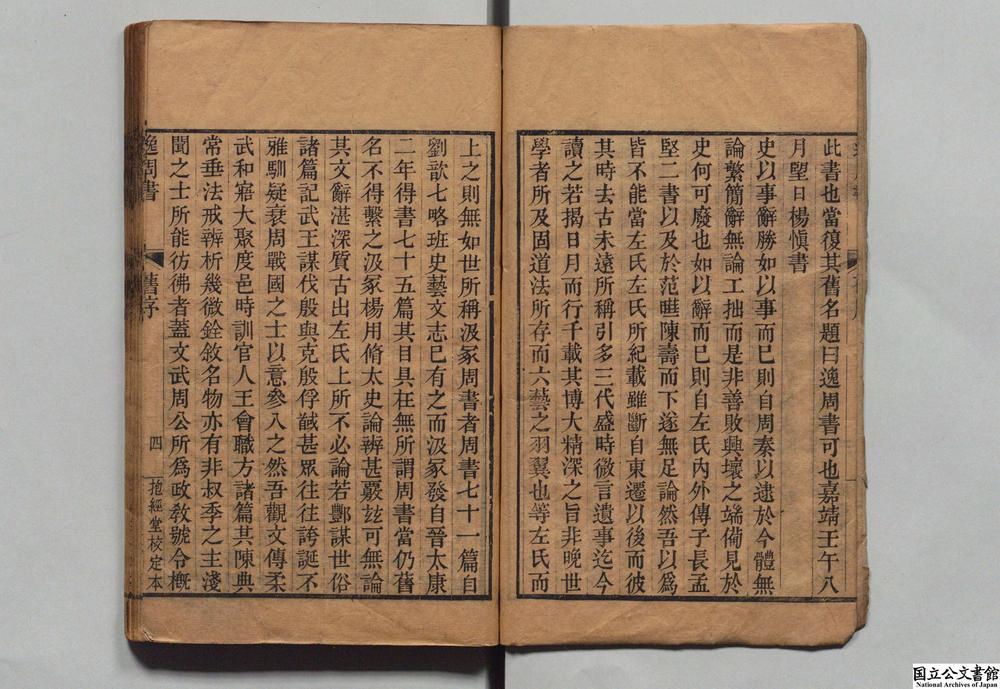 此書也當復其舊名題曰逸周書可也嘉靖壬午八
月望日楊愼書
史以事辭勝如以事而已則自周秦以逮於今體無
論繫簡辭無論工拙而是非善敗興壞之端備見於
史何可廢也如以辭而已則自左氏內外傳子長孟
堅二書以及於范曄陳壽而下遂無足論然吾以爲
皆不能當左氏左氏所紀載雖斷自東遷以後而彼
其時去古未遠所稱引多三代盛時微言遺事迄今
讀之若揭日月而行千載其博大精深之旨非晚世
學者所及固道法所存而六藝之羽翼也等左氏而
上之則無如世所稱汲冢周書者周書七十一篇自
劉歆七略班史藝文志已有之而汲冢發自晉太康
二年得書七十五篇其目具在無所謂周書當仍舊
名不得繫之汲冢楊用脩太史論辨甚覈玆可無論
其文辭湛深質古出左氏上所不必論若酆謀世俘
諸篇記武王謀伐殷與克殷俘馘甚眾往往誇誕不
雅馴疑衰周戰國之士以意參入之然吾觀文傳柔
武和寤大聚度邑時訓官人王會職方諸篇其陳典
常垂法戒辨析幾微銓敘名物亦有非叔季之主淺
聞之士所能彷彿者蓋文武周公所爲政敎號令槪
逸周書
舊序
四
抱經堂校定本
国立公文書館
National Archives of Japan